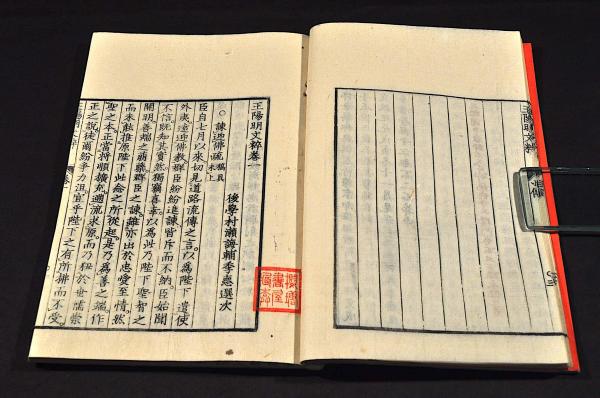 王陽明文粹
王陽明文粹卷一
後學村瀨誨輔季德選次
○諫迎佛疏 稿具未上
臣自七月以來切見道路流傳之言以爲陛下遣使
外夷遠迎佛教群臣紛紛進諫皆斥而不納臣始聞
不信旣知其實然獨竊喜幸以爲此乃陛下聖智之
開明善端之萌蘗群臣之諫雖亦出於忠愛至情然
而未能推原陛下此念之所從起是乃爲善之端作
聖之本正當將順擴充遡流求原而乃狃於世儒崇
正之說徒爾紛爭力沮宜乎陛下之有所拂而不受